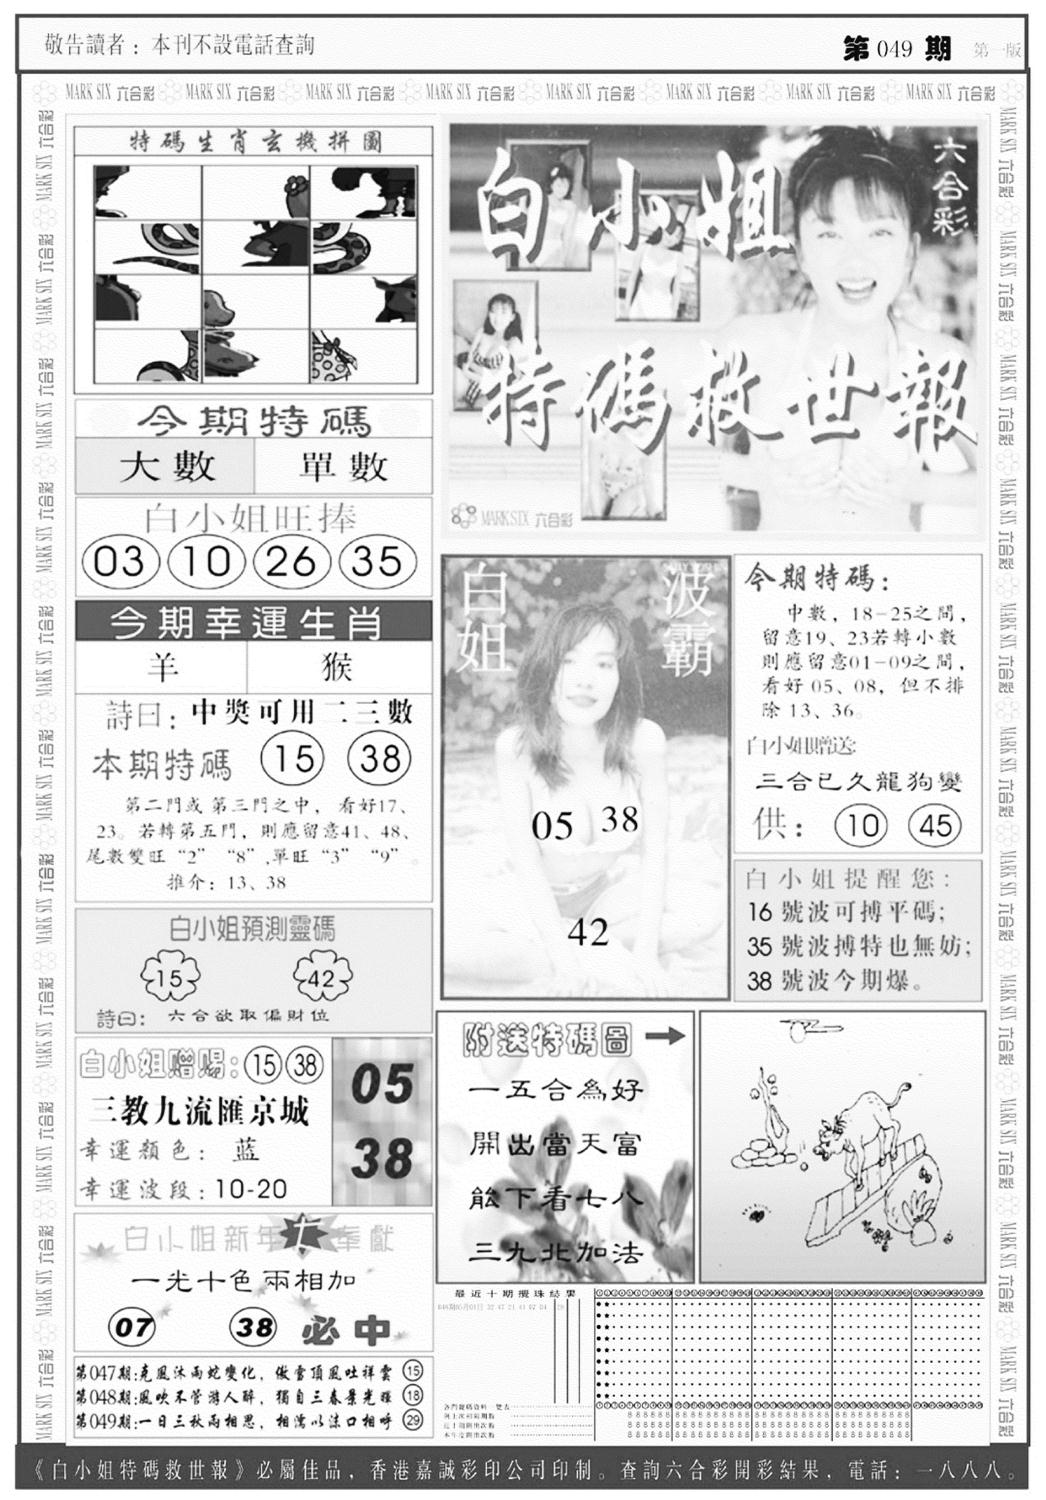 敬告讀者：本刊不設電話查詢
第 049 期 第一版
MARK SIX 六合彩 MARK SIX 六合彩 MARK SIX 六合彩 MARK SIX 六合彩 MARK SIX 六合彩 MARK SIX 六合彩 MARK SIX 六合彩 MARK SIX 六合彩
特碼生肖玄機拼圖
六合彩
白小姐
特碼救世報
MARK SIX 六合彩
今期特碼
大數 單數
白小姐旺捧
03 10 26 35
今期幸運生肖
羊 猴
詩曰：中獎可用二三數
本期特碼 15 38
第二門或第三門之中，看好17、
23。若轉第五門，則應留意41、48、
尾數雙旺“2”“8”,單旺“3”“9”。
推介：13、38
白小姐預測靈碼
15 42
詩曰：六合欲取偏財位
白小姐贈賜：15 38
三教九流匯京城
幸運顏色：蓝
幸運波段：10-20
05
38
白小姐新年奉獻
一光十色兩相加
07 38 必中
第047期:克風沐雨蛇變化，傲雪頂風吐祥雲 15
第048期:風吹不管游人醉，獨自三春景光輝 18
第049期:一日三秋兩相思，相濡以沫口相呼 29
白姐 波霸
05 38
42
今期特碼：
中數，18-25之間，
留意19、23若轉小數
則應留意01-09之間，
看好05、08，但不排
除13、36。
白小姐贈送:
三合已久龍狗變
供：10 45
白小姐提醒您：
16 號波可搏平碼；
35 號波搏特也無妨；
38 號波今期爆。
附送特碼圖
一五合為好
開出當天富
能下看七八
三九北加法
最近十期攪珠結果
《白小姐特碼救世報》必屬佳品，香港嘉誠彩印公司印制。查詢六合彩開彩結果，電話：一八八八。